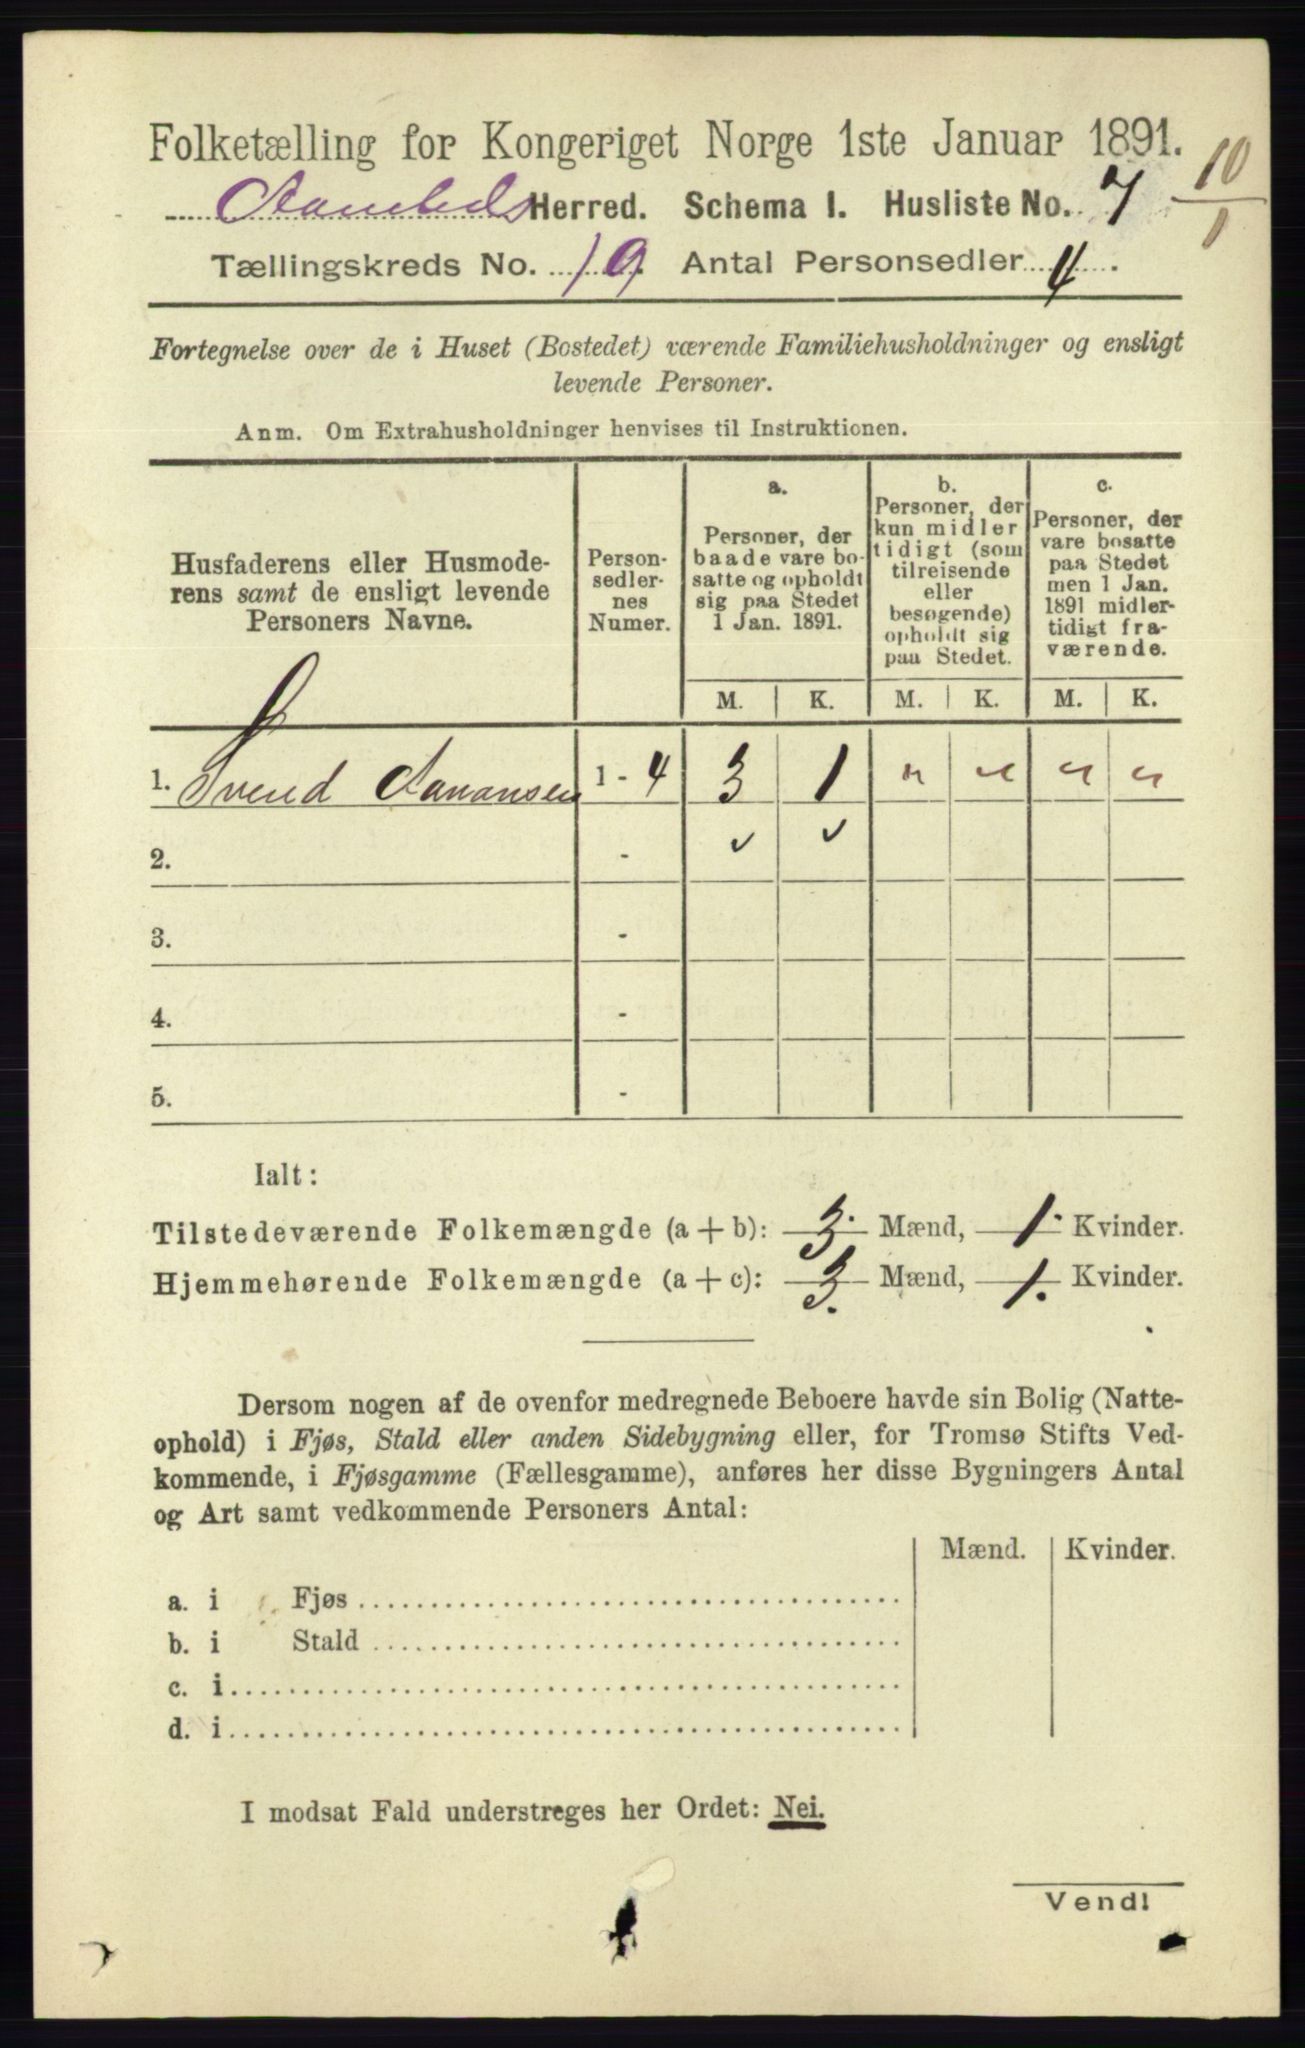 Folketælling for Kongeriget Norge 1ste Januar 1891.
10
Herred. Schema I. Husliste No. 7
1
Tællingskreds No. 10. Antal Personsedler 4.
Fortegnelse over de i Huset (Bostedet) værende Familiehusholdninger og ensligt
levende Personer.
Anm. Om Extrahusholdninger henvises til Instruktionen.
Husfaderens eller Husmode-
rens samt de ensligt levende
Personers Navne.
Person-
sedler-
nes
Numer.
a.
Personer, der
baade vare bo-
satte og opholdt
sig paa Stedet
1 Jan. 1891.
b.
Personer, der
kun midler
tidigt (som
tilreisende
eller
besøgende)
opholdt sig
paa Stedet.
c.
Personer, der
vare bosatte
paa Stedet
men 1 Jan.
1891 midler-
tidigt fra-
værende.
M. K. M. K. M. K.
1. Svend Aanansen 1 - 4 3 1 " " " "
2. - ✓ ✓
3. -
4. -
5. -
Ialt:
Tilstedeværende Folkemængde (a + b): 3. Mænd, 1. Kvinder.
Hjemmehørende Folkemængde (a + c): 3. Mænd, 1. Kvinder.
Dersom nogen af de ovenfor medregnede Beboere havde sin Bolig (Natte-
ophold) i Fjøs, Stald eller anden Sidebygning eller, for Tromsø Stifts Ved-
kommende, i Fjøsgamme (Fællesgamme), anføres her disse Bygningers Antal
og Art samt vedkommende Personers Antal:
Mænd. Kvinder.
a. i Fjøs
b. i Stald
c. i
d. i
I modsat Fald understreges her Ordet: Nei.
Vend!